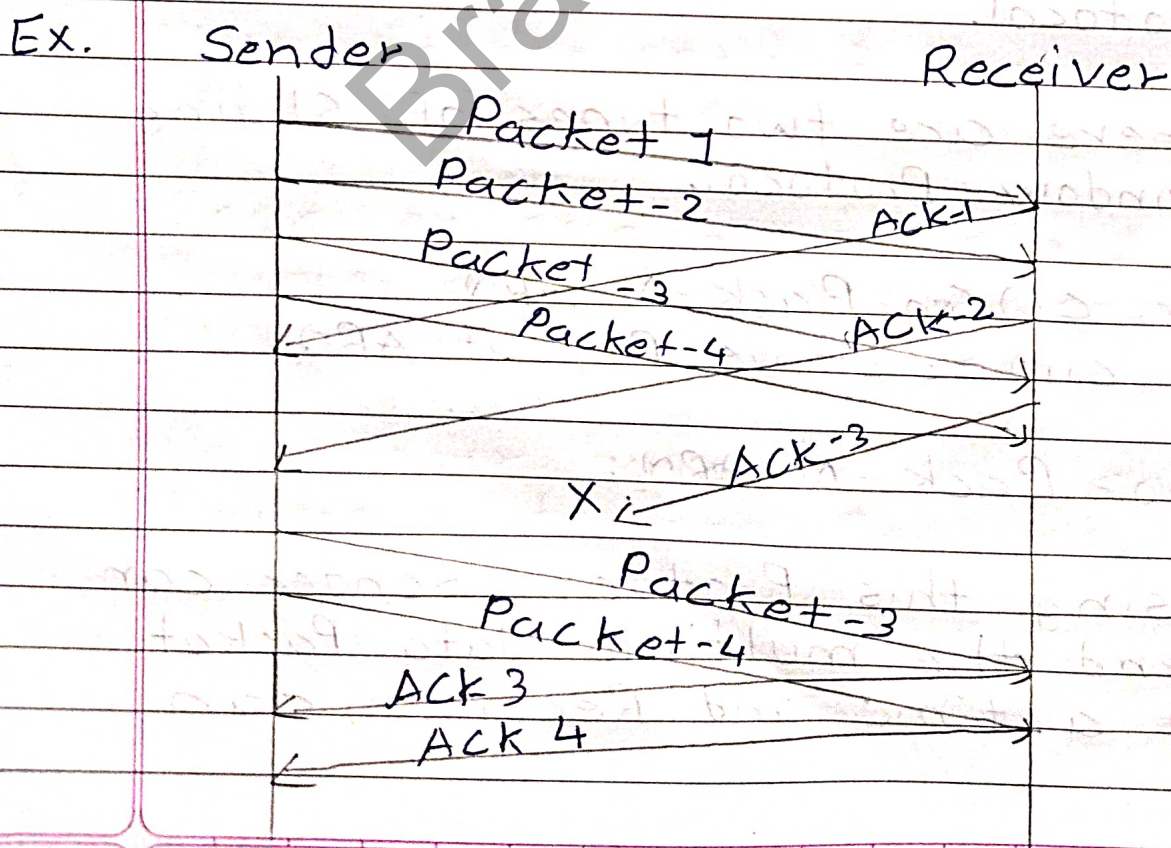 Ex. Sender Receiver
Packet 1
Packet-2
ACK-1
Packet-3
ACK-2
Packet-4
ACK-3
X
Packet-3
Packet-4
ACK 3
ACK 4